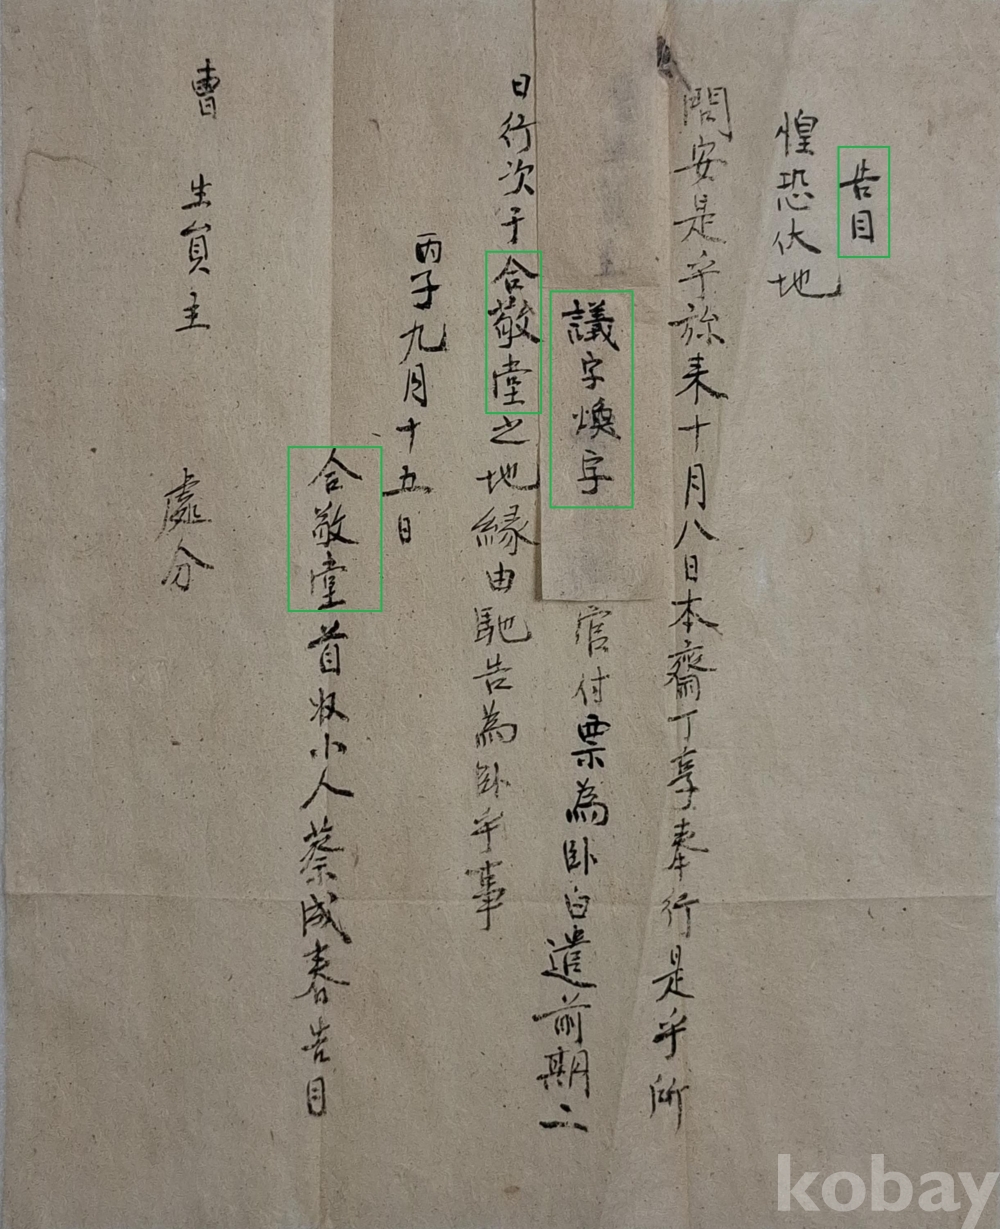 告目
惶恐伏地
問安是乎旀来十月八日本齋丁享奉行是乎所
議字煥字
官付票為卧白遣前期二
日行次于合敬堂之地緣由馳告為卧乎事
丙子九月十五日
合敬堂首奴小人蔡成春告目
曺 生員主
處分
kobay